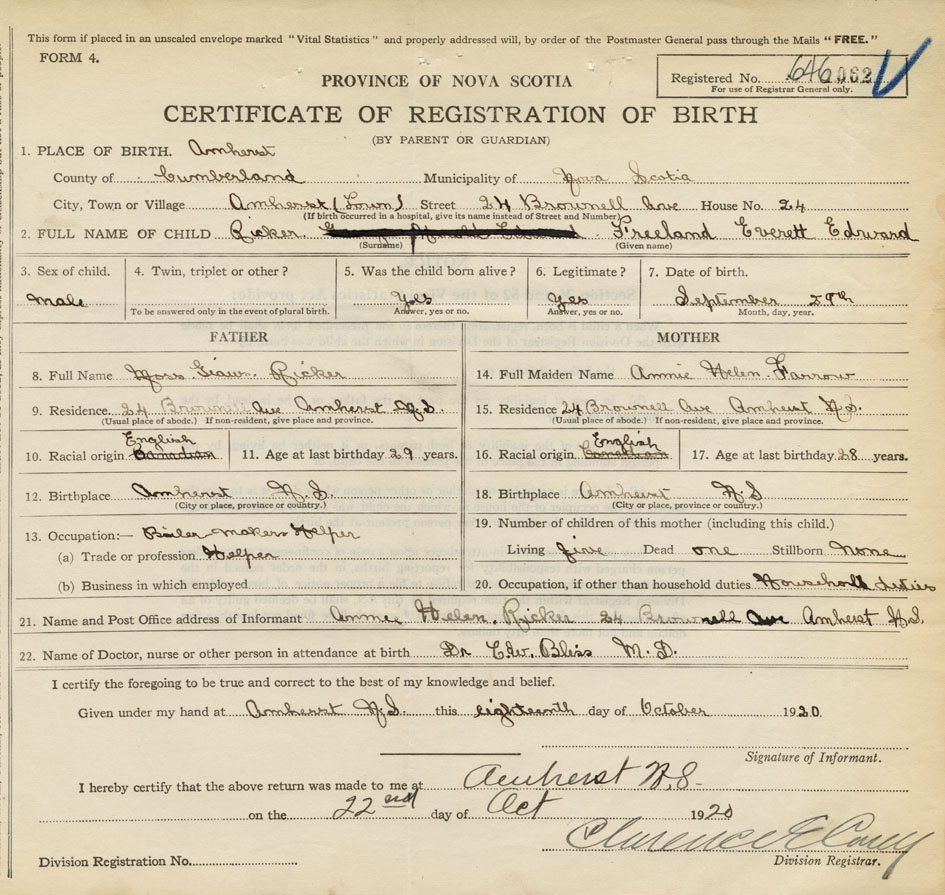 This form if placed in an unsealed envelope marked "Vital Statistics" and properly addressed will, by order of the Postmaster General pass through the Mails "FREE."
FORM 4.
PROVINCE OF NOVA SCOTIA
Registered No. 646062
For use of Registrar General only.
CERTIFICATE OF REGISTRATION OF BIRTH
(BY PARENT OR GUARDIAN)
1. PLACE OF BIRTH. Amherst
County of Cumberland Municipality of Nova Scotia
City, Town or Village Amherst (Town) Street 24 Brownell Ave House No. 24
(If birth occurred in a hospital, give its name instead of Street and Number)
2. FULL NAME OF CHILD Ricker Freeland Everett Edward
(Surname) (Given name)
3. Sex of child. 4. Twin, triplet or other? 5. Was the child born alive? 6. Legitimate? 7. Date of birth.
Male Yes Yes September 29th
To be answered only in the event of plural birth. Answer, yes or no. Answer, yes or no. Month, day, year.
FATHER MOTHER
8. Full Name Ricker
14. Full Maiden Name Annie Helen Farrow
9. Residence. 24 Brownell Ave Amherst N.S.
(Usual place of abode.) If non-resident, give place and province.
15. Residence 24 Brownell Ave Amherst N.S.
(Usual place of abode.) If non-resident, give place and province.
10. Racial origin English Canadian 11. Age at last birthday 29 years.
16. Racial origin English Canadian 17. Age at last birthday 28 years.
12. Birthplace Amherst N.S.
(City or place, province or country.)
18. Birthplace Amherst N.S
(City or place, province or country.)
13. Occupation:— Boiler makers Helper
(a) Trade or profession Helper
(b) Business in which employed
19. Number of children of this mother (including this child.)
Living five Dead one Stillborn None
20. Occupation, if other than household duties Household duties
21. Name and Post Office address of Informant Annie Helen Ricker 24 Brownell Ave Amherst N.S.
22. Name of Doctor, nurse or other person in attendance at birth Dr Edw. Bliss M.D.
I certify the foregoing to be true and correct to the best of my knowledge and belief.
Given under my hand at Amherst N.S. this eighteenth day of October 1920
Signature of Informant.
I hereby certify that the above return was made to me at Amherst N.S.
on the 22nd day of Oct 1920
Clarence E
Division Registration No. Division Registrar.